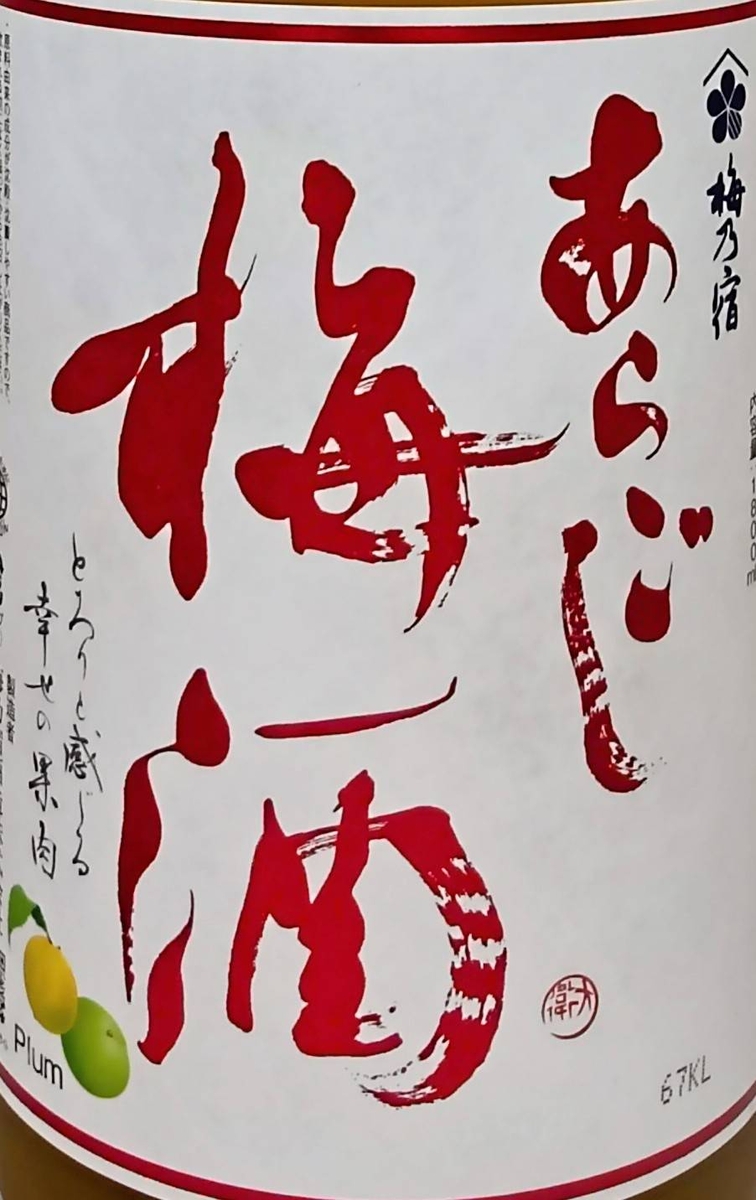 梅乃宿
内容量 1800ml
あらごし
梅酒
とろりと感じる
幸せの果肉
製造者
Plum
67KL